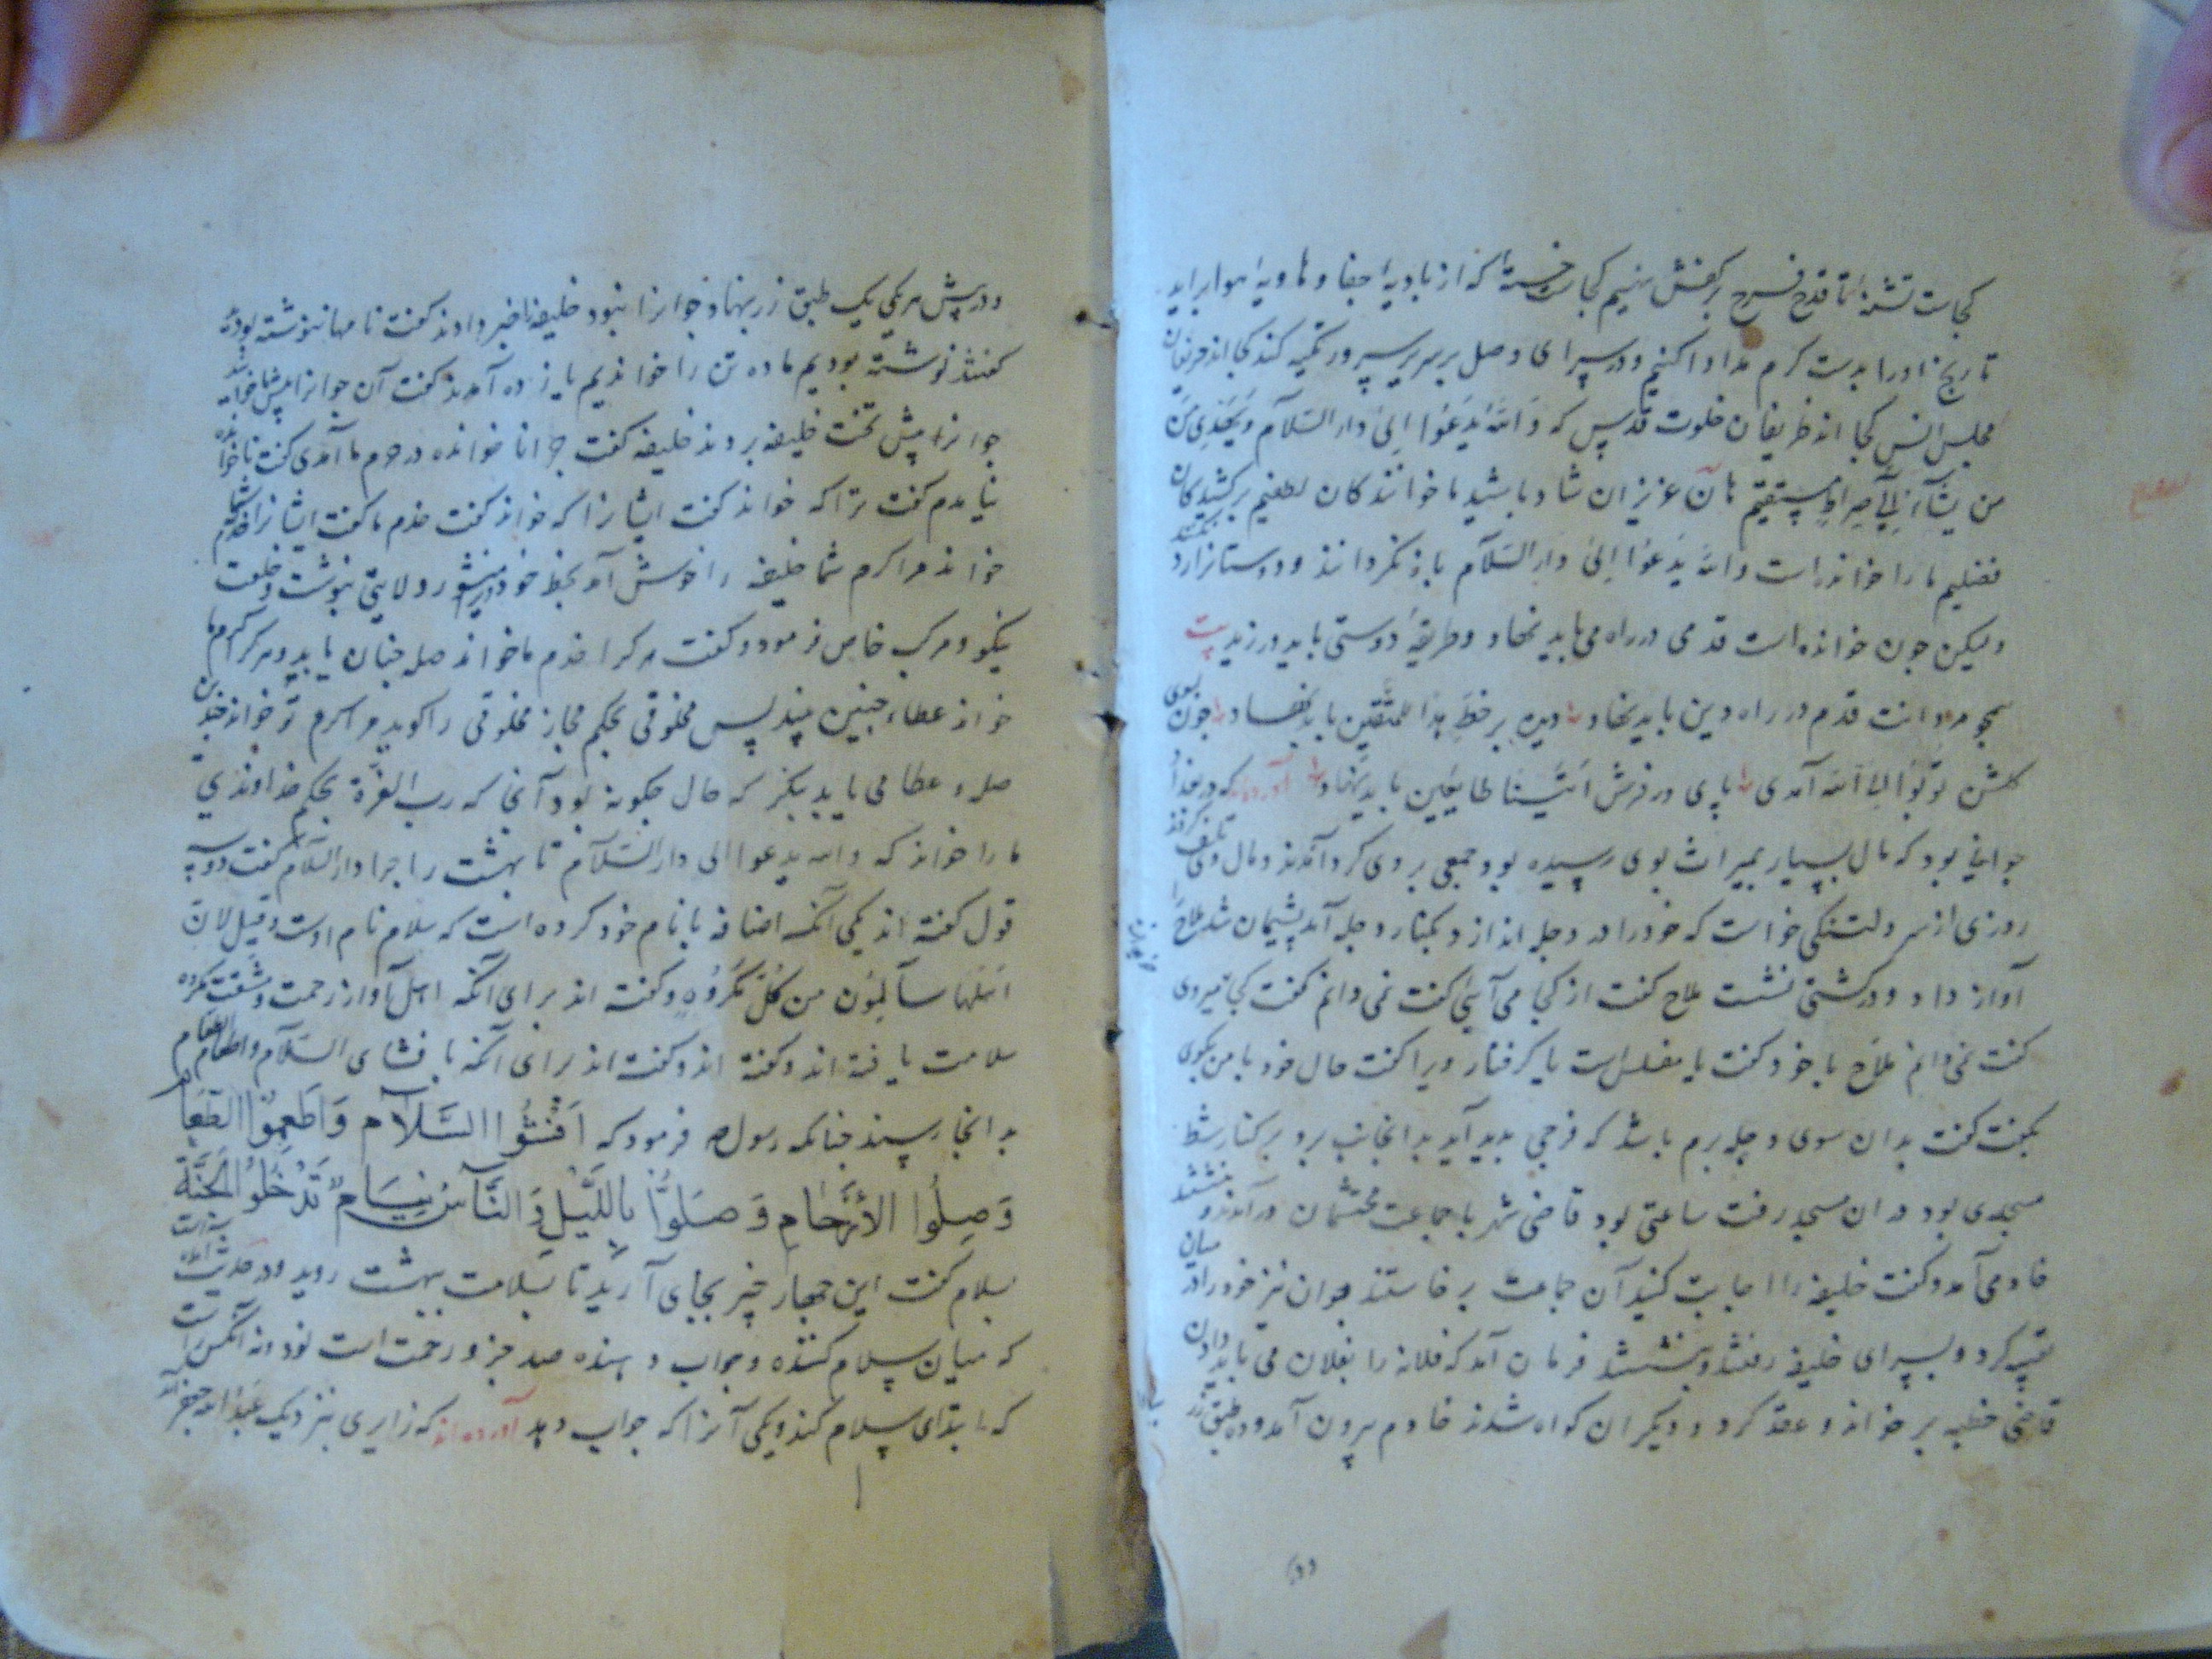 کجاست تشنهٔ تا قدح فرح بر کفش نهیم کجاست خستهٔ که از بادیهٔ جفا و هاویهٔ هوا برآید
تا رنج او را بدست کرم مداوا کنیم و در سرای وصل بر سریر سرور تکیه کند کجا اند حریفان
مجلس انس کجا اند ظریفان خلوت قدس که وَاللّٰهُ یَدْعُوا اِلیٰ دار السّلام وَ یَهْدِی مَن
من یَشآءُ اِلیٰ صِراطٍ مُسْتَقیم هان عزیزان شاد باشید ما خوانندکان لطفیم برکشیدکان
فضلیم ما را خوانده است والله یَدعُوا اِلیٰ دارِ السّلام باز نکردانند و دوستانرا رد نکنند
ولیکن چون خوانده است قدمی در راه می باید نهاد و طریقهٔ دوستی باید ورزید بیت
همچو مردانت قدم در راه دین باید نهاد دیده بر خط هُدًا للمتّقین باید نهاد چون بسوی
کلشن تُوبُوا اِلَی الله آمدی پای در فرش اَتَیْنا طایِعین باید نهاد آورده‌اند که در بغداد
جوانی بود که مال بسیار بمیراث بوی رسیده بود جمعی بر وی کرد آمدند و مال وی تلف کردند
روزی از سر دلتنکی خواست که خود را در دجله اندازد بکنار دجله آمد پشیمان شد ملاح را
آواز داد و در کشتی نشست ملاح کفت از کجا می آئی کفت نمی دانم کفت کجا میروی
کفت نمی دانم ملاح با خود کفت یا مفلس است یا کرفتار ویرا کفت حال خود با من بکوی
بکفت کفت بدان سوی دجله برم باشد که فرجی بدید آید بدانجانب برد بر کنار شط
مسجدی بود در ان مسجد رفت ساعتی بود قاضی شهر با جماعت محتشمان درآمدند و بنشستند
خادمی آمد و کفت خلیفه را اجابت کنید آن جماعت برخاستند جوان نیز خود را در میان
تعبیه کرد و بسرای خلیفه رفتند و بنشستند فرمان آمد که فلانه را بفلان می باید دادن
قاضی خطبه برخواند و عقد کرد و دیکران کواه شدند خادم بیرون آمد و ده طبق زر
و در پیش هر یکی یک طبق زر بنهاد جوانرا نبود خلیفه را خبر دادند کفت نامها نبوشته بودید
کفتند نوشته بودیم ما ده تن را خواندیم یازده آمدند کفت آن جوانرا پیش خوانید
جوانرا پیش تخت خلیفه بردند خلیفه کفت چرا ناخوانده در حرم ما آمدی کفت ناخوانده
نیامدم کفت ترا که خواند کفت ایشانرا که خواند کفت خدم ما کفت ایشانرا خدم شما
خواند مرا کرم شما خلیفه را خوش آمد بخط خود منشور ولایتی بنوشت و خلعت
نیکو و مرکب خاص فرمود و کفت هر کرا خدم ما خواند صله چنان یابد و هر کرا کرم ما
خواند عطاء چنین بیند پس مخلوقی بحکم مجاز مخلوقی را کوید مرا کرم تو خواند چندین
صله و عطا می یابد بنکر که حال چکونه بود آنجا که رب العزّة بحکم خداوندی
ما را خواند که والله یدعوا الی دار السّلام تا بهشت را چرا دار السّلام کفت دو سه
قول کفته اند یکی آنکه اضافه با نام خود کرده است که سلام نام اوست و قیل لانّ
اهلها سالِمُون من کُلّ مَکْرُوهٍ و کفته اند برای آنکه اهل آواز رحمت و شفقت
سلامت یافته اند و کفته اند و کفته اند برای آنکه بافشای السّلام و اطعام الطعام
بدانجا رسند چنانکه رسول ص فرمود که اَفْشُوا السَّلَامَ وَاَطْعِمُوا الطَّعَامَ
وَصِلُوا الْاَرْحَامِ وَصَلُّوا بِاللَّیْلِ وَالنَّاسُ نِیَامٌ تَدْخُلُوا الْجَنَّةَ
بسلام کفت این چهار چیز بجای آرید تا بسلامت ببهشت روید و در حدیث آمده است
که میان سلام کننده و جواب دهنده صد جزو رحمت است نود و نه آنکس راست
که ابتدای سلام کند و یکی آنرا که جواب دهد آورده‌اند که زایری بنزدیک عبدالله جعفر آمد